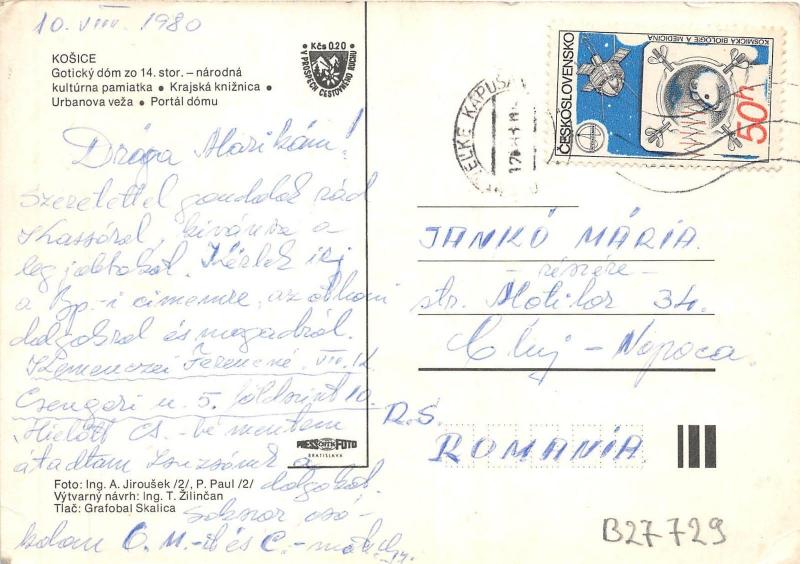 10. VIII. 1980
KOŠICE
Gotický dóm zo 14. stor. – národná
kultúrna pamiatka • Krajská knižnica •
Urbanova veža • Portál dómu
Kčs 0.20
V PROSPECH CESTOVNÉHO RUCHU
Drága Marikám!
Szeretettel gondolok rád
Kassáról, kívánva a
legjobbakat. Kérlek írj
a Bp.-i címemre, az otthoni
dolgokról és magadról.
Kemenczei Ferencné, VII. k.
Csengeri u. 5. földszint 10.
Mielőtt Cs.-be mentem
átadtam Zsuzsának a
dolgokat.
Sokszor csó-
kolom
PRESSFOTO
BRATISLAVA
Foto: Ing. A. Jiroušek /2/, P. Paul /2/
Výtvarný návrh: Ing. T. Žilinčan
Tlač: Grafobal Skalica
VEĽKÉ KAPUŠANY
ČESKOSLOVENSKO
KOSMICKÁ BIOLOGIE A MEDICÍNA
50h
JANKÓ MÁRIA
– részére –
str. Motilor 34.
Cluj – Napoca
R.S.
ROMANIA
B27729